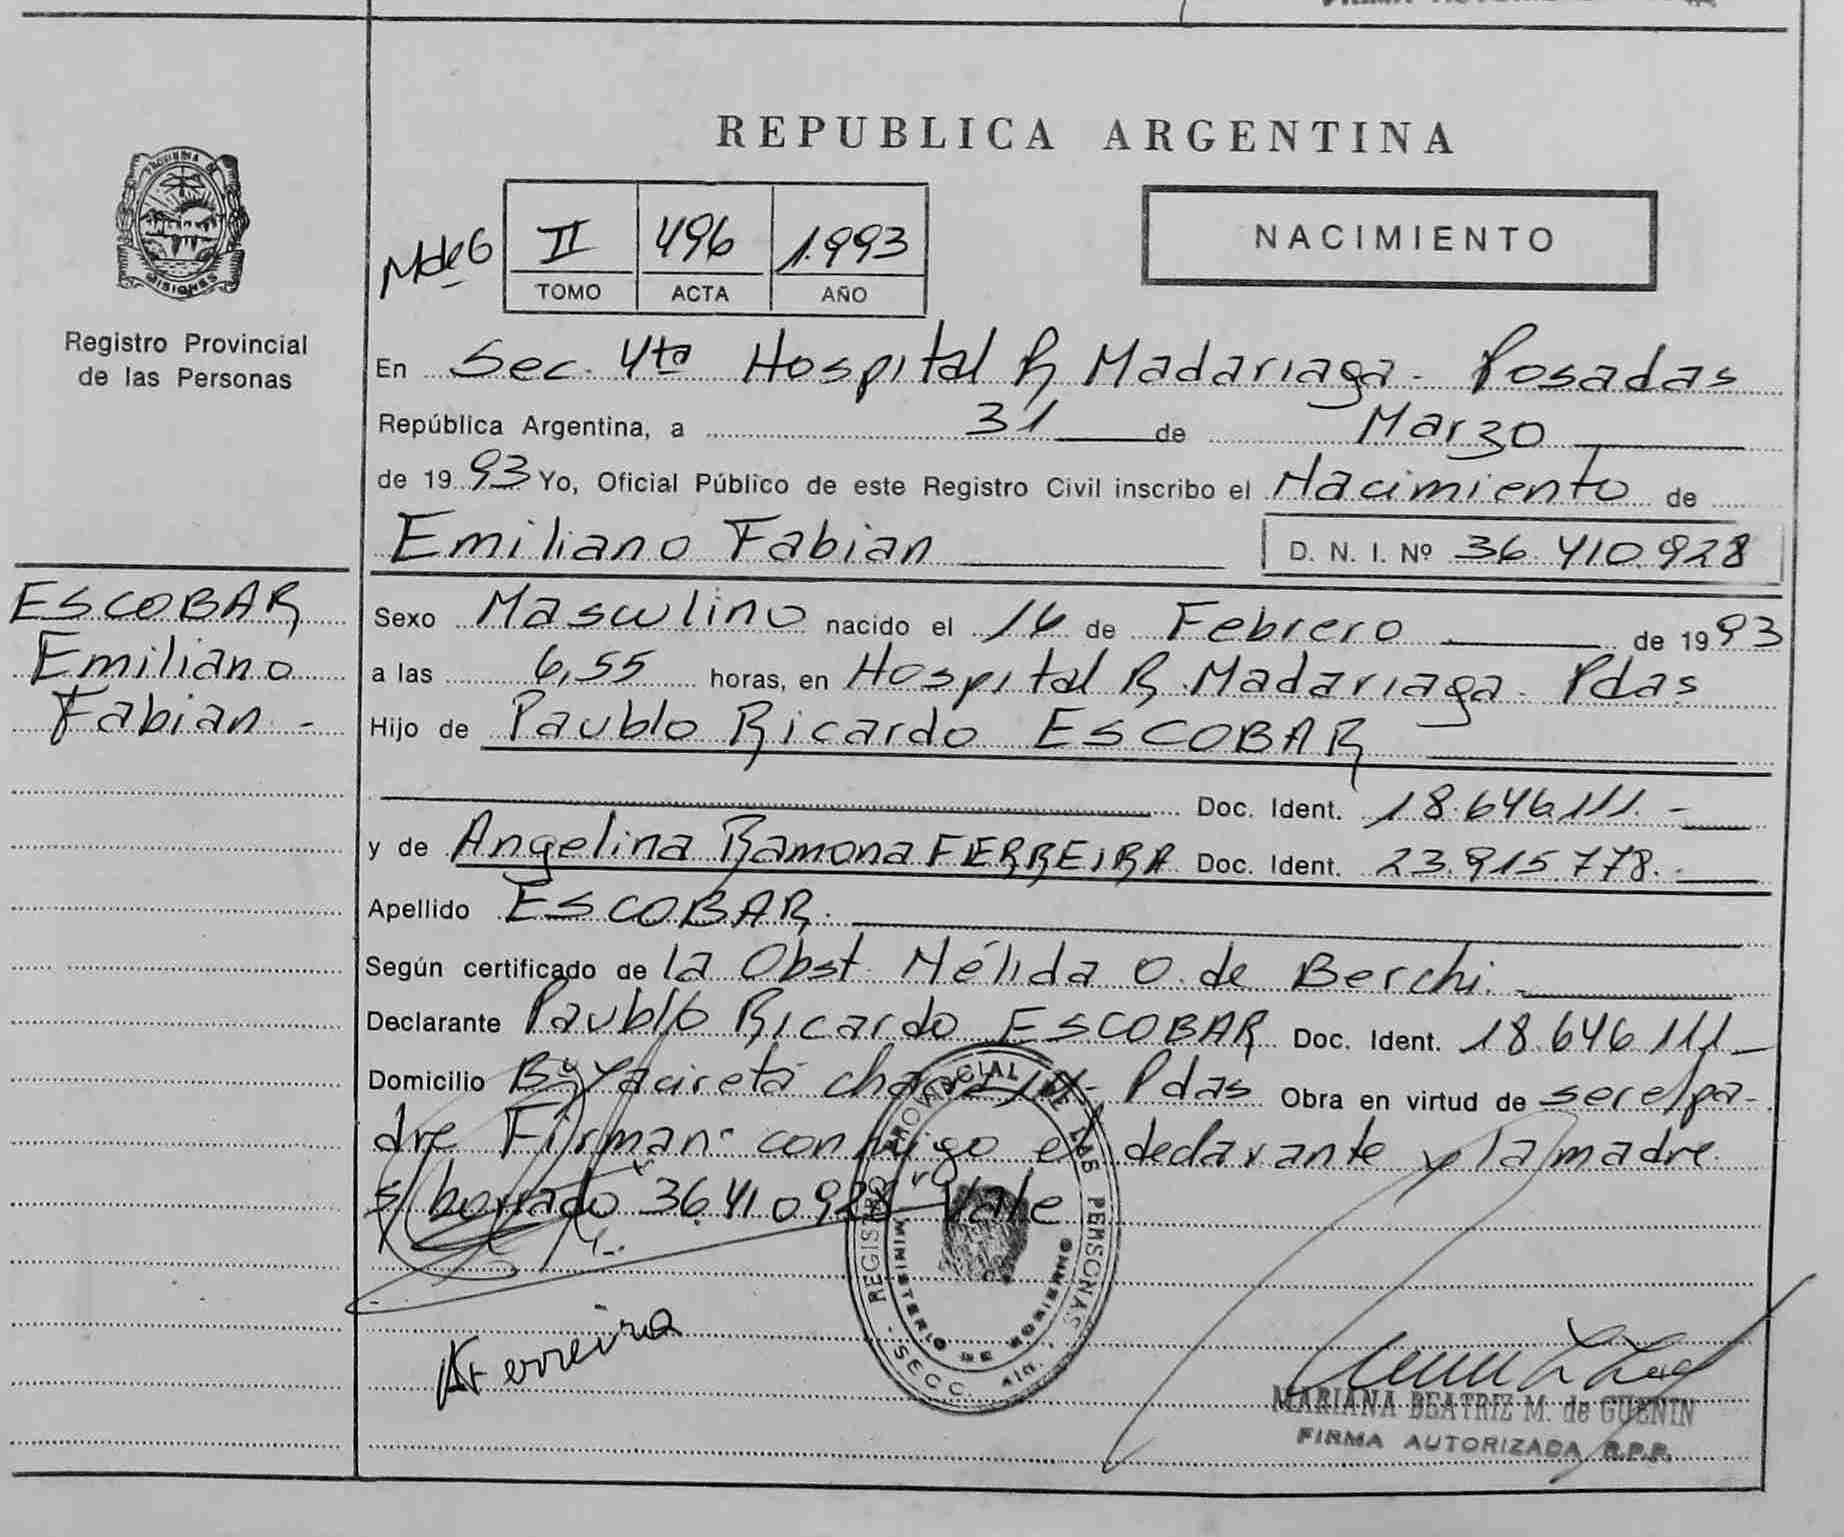 REPUBLICA ARGENTINA
PROVINCIA DE
MISIONES
Registro Provincial
de las Personas
MdeG
II 496 1.993
TOMO ACTA AÑO
NACIMIENTO
En Sec. 4ta Hospital R Madariaga - Posadas
República Argentina, a 31 de Marzo
de 1993 Yo, Oficial Público de este Registro Civil inscribo el Nacimiento de
Emiliano Fabian D. N. I. Nº 36.410.928
ESCOBAR
Emiliano
Fabian -
Sexo Masculino nacido el 16 de Febrero de 1993
a las 6,55 horas, en Hospital R. Madariaga - Pdas
Hijo de Paublo Ricardo ESCOBAR
Doc. Ident. 18.646.111.-
y de Angelina Ramona FERREIRA Doc. Ident. 23.915.778.-
Apellido ESCOBAR.
Según certificado de la Obst. Nélida O. de Berchi.-
Declarante Paublo Ricardo ESCOBAR Doc. Ident. 18.646.111-
Domicilio Bº Yacireta - Pdas Obra en virtud de ser el pa-
dre Firman conmigo el declarante y la madre
s/ borrado 36.410.928 Vale
REGISTRO PROVINCIAL DE LAS PERSONAS
MINISTERIO DE GOBIERNO
SECC. 4ta.
AFerreira
MARIANA BEATRIZ M. de GUENIN
FIRMA AUTORIZADA R.P.P.